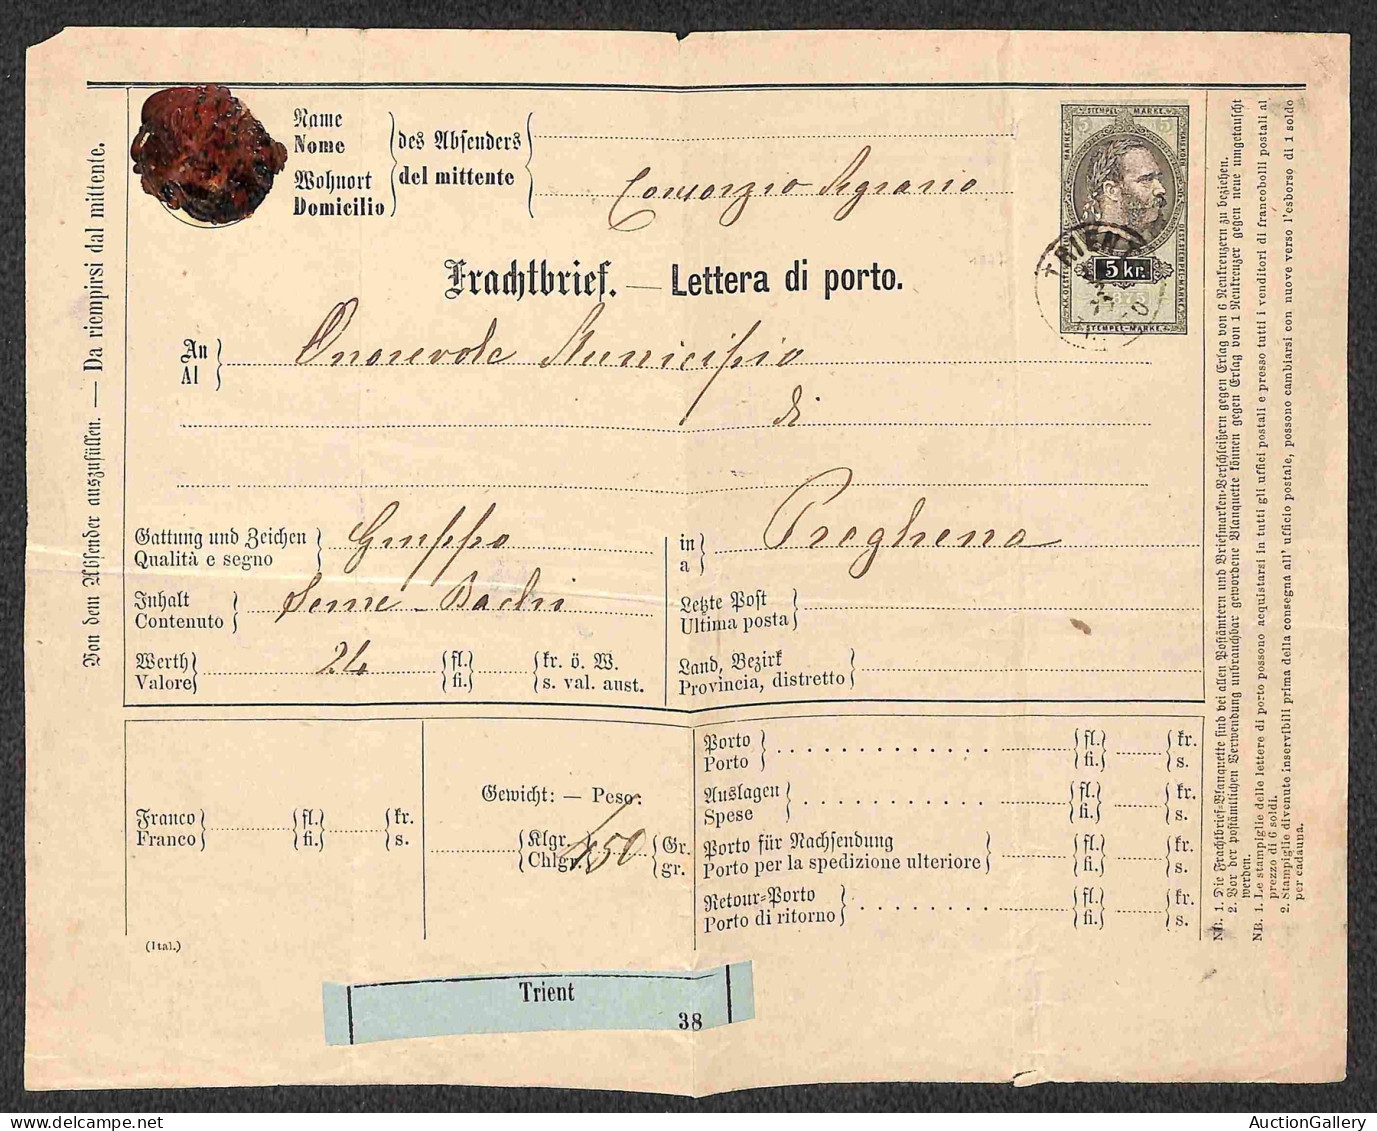 Name
Nome
Wohnort
Domicilio
des Absenders
del mittente
Consorzio Agrario
5 STEMPEL-MARKE. 5
5 kr.
STEMPEL-MARKE.
TRIENT
Frachtbrief. — Lettera di porto.
An
Al
Onorevole Municipio
di
Gattung und Zeichen
Qualità e segno
Gruppo
in
a
Preghena
Inhalt
Contenuto
Seme-Bachi
Letzte Post
Ultima posta
Werth
Valore
24
fl.
fi.
kr. ö. W.
s. val. aust.
Land, Bezirk
Provincia, distretto
Franco
Franco
fl.
fi.
kr.
s.
Gewicht: — Peso:
Klgr.
Chlgr.
450
Gr.
gr.
Porto
Porto
fl.
fi.
kr.
s.
Auslagen
Spese
fl.
fi.
kr.
s.
Porto für Nachsendung
Porto per la spedizione ulteriore
fl.
fi.
kr.
s.
Retour-Porto
Porto di ritorno
fl.
fi.
kr.
s.
(Ital.)
Trient
38
Von dem Absender auszufüllen. — Da riempirsi dal mittente.
NB. 1. Die Frachtbrief-Blanquette sind bei allen Postämtern und Briefmarken-Verschleißern gegen Erlag von 6 Neukreuzern zu beziehen.
2. Vor der postämtlichen Verwendung unbrauchbar gewordene Blanquette können gegen Erlag von 1 Neukreuzer gegen neue umgetauscht
werden.
NB. 1. Le stampiglie delle lettere di porto possono acquistarsi in tutti gli uffici postali e presso tutti i venditori di francobolli postali al
prezzo di 6 soldi.
2. Stampiglie divenute inservibili prima della consegna all' ufficio postale, possono cambiarsi con nuove verso l'esborso di 1 soldo
per cadauna.
AuctionGallery